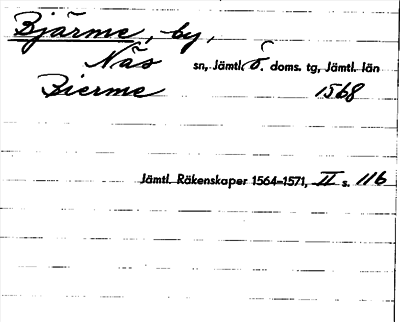 Bjärme, by,
Näs sn, Jämtl. ö. doms. tg, Jämtl. län
Bierme 1568
Jämtl. Räkenskaper 1564–1571, II s. 116